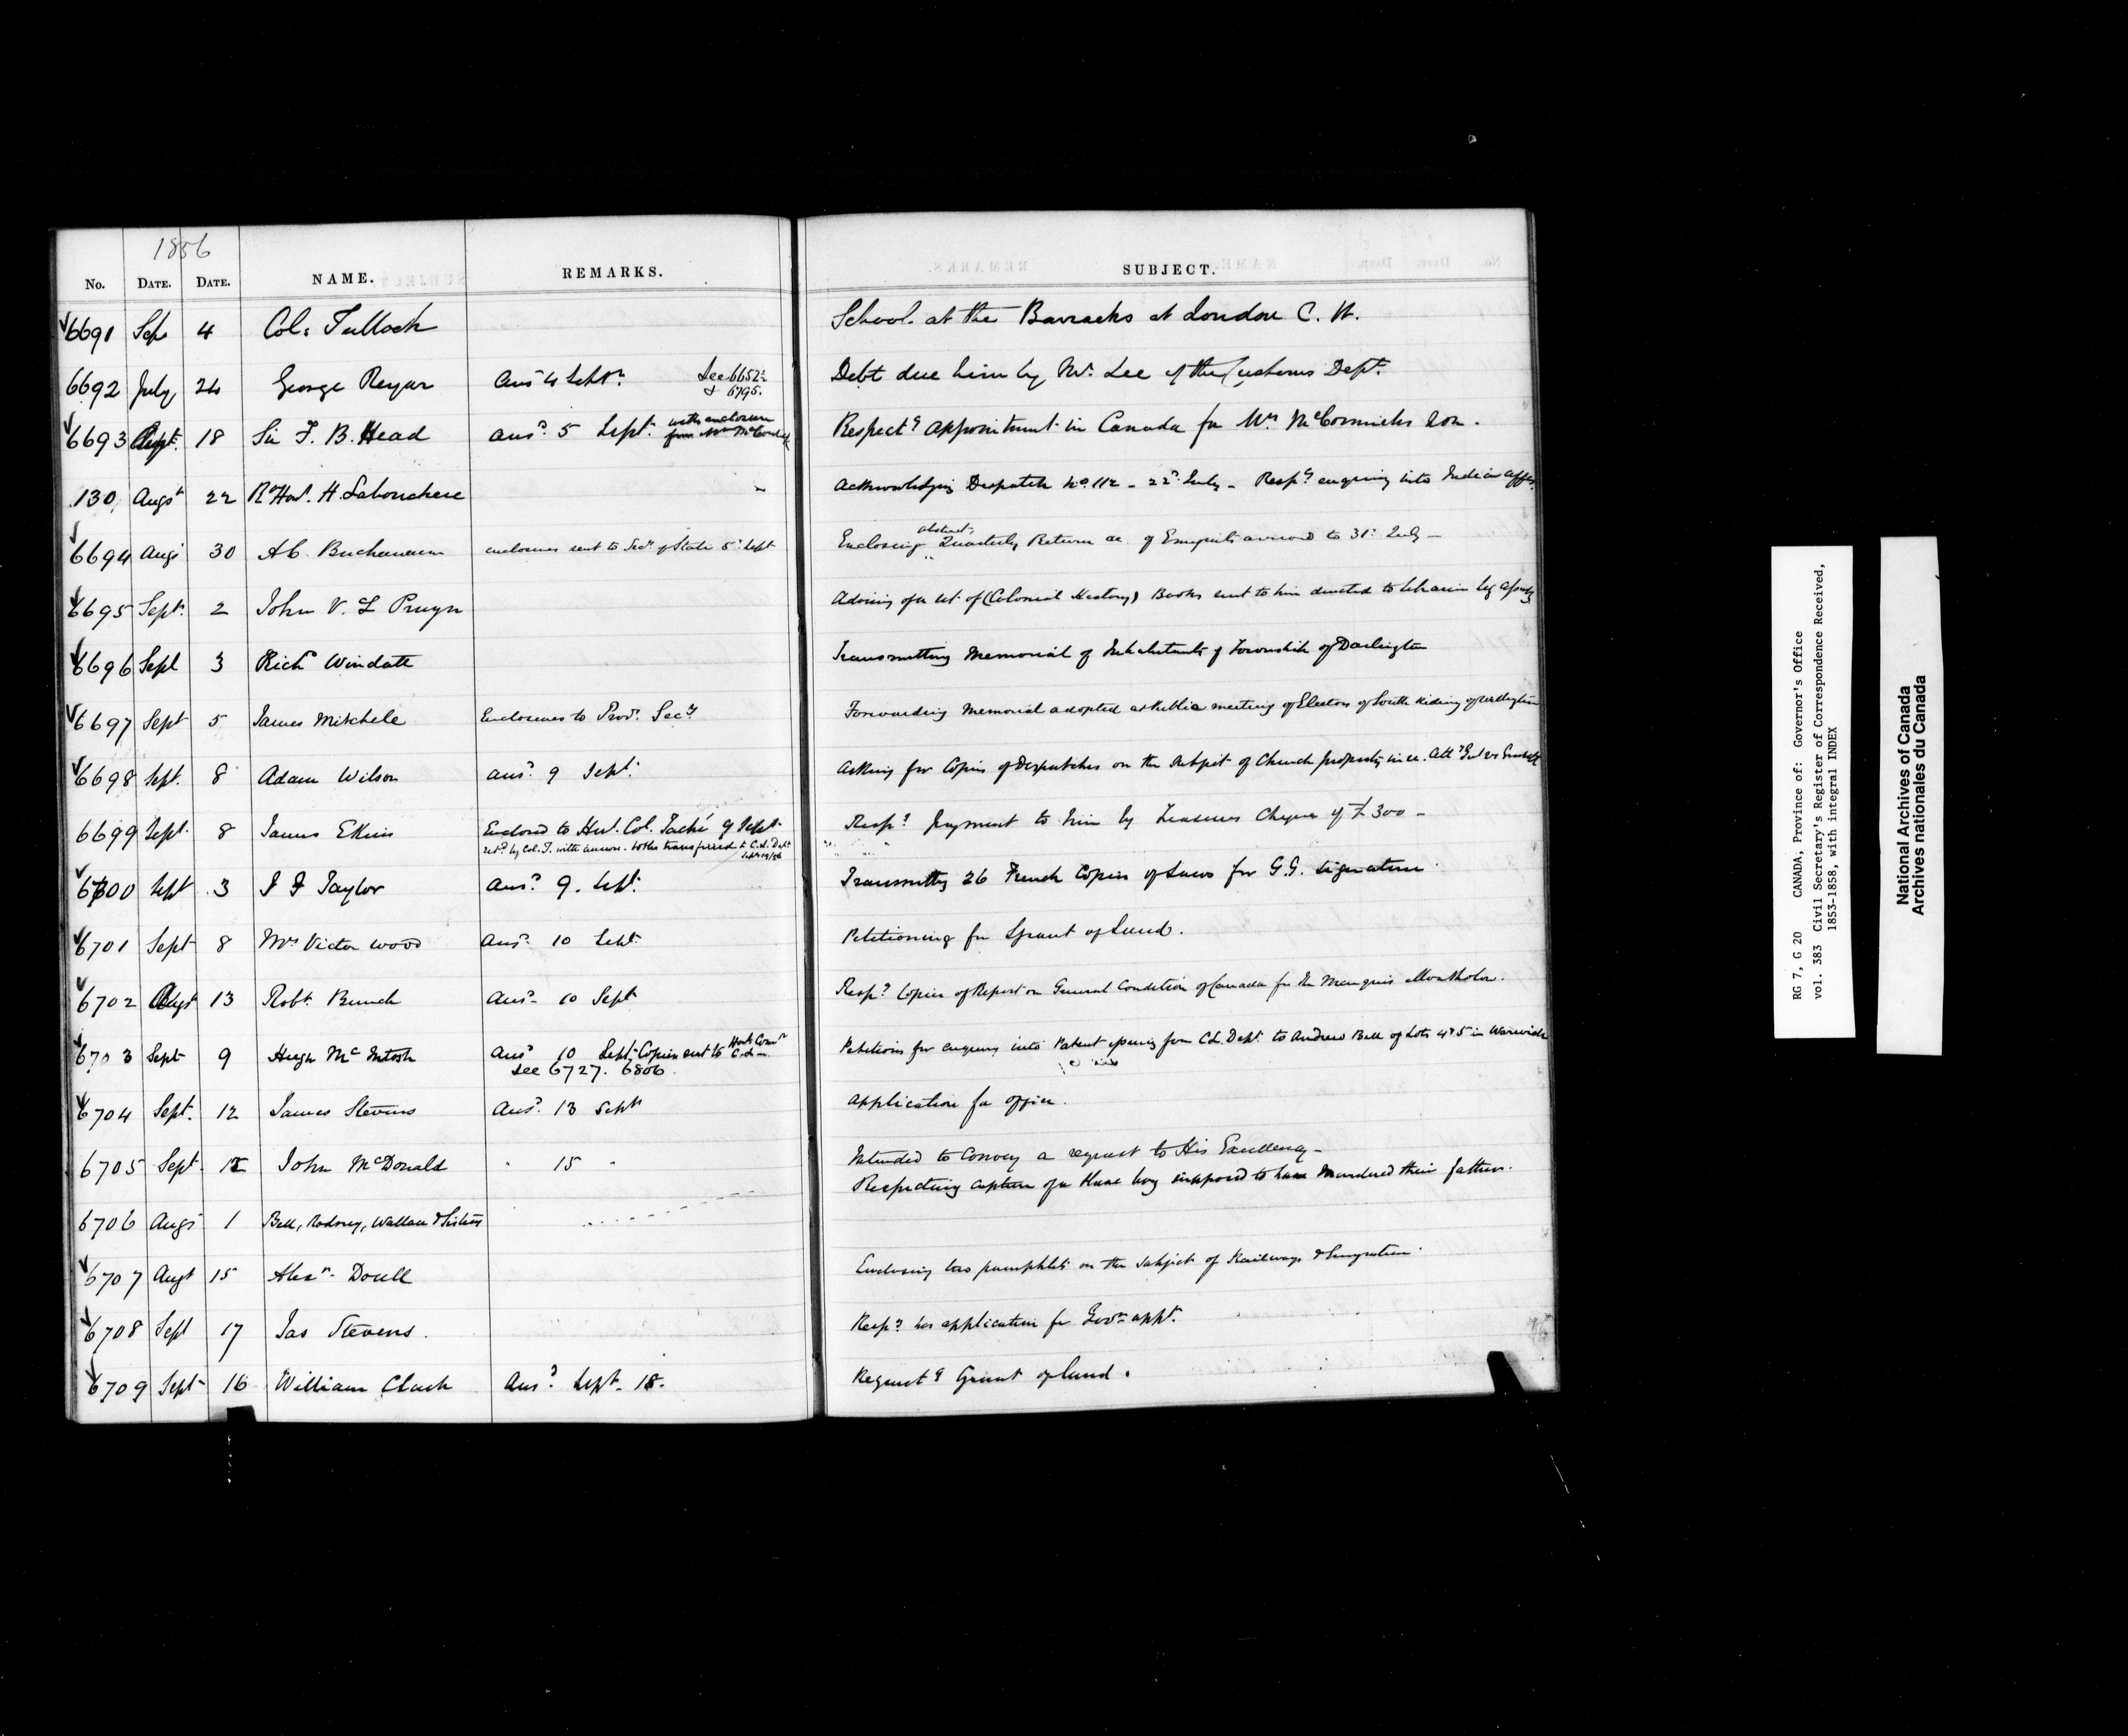 1856
No. DATE. DATE. NAME. REMARKS. SUBJECT.
6691 Sept 4 Col. Tulloch School at the Barracks at London C. W.
6692 July 24 George Reyar Ansd 4 Septr. See 6652½ & 6795. Debt due him by Mr. Lee of the Customs Dept.
6693 Augt. 18 Sir F. B. Head Ansd. 5 Sept. with enclosure from Mrs McCormick Respectg appointment in Canada for Mrs McCormicks son.
130 Augst 22 Rt Honl. H. Labouchere Acknowledging Despatch No. 112 - 22d. July - Respg enquiry into Indian affrs.
6694 Augt 30 A C. Buchanan enclosures sent to Secy of State 5th Sept Enclosing abstract, Quarterly Return &c of Emigrants arrived to 31st July -
6695 Sept. 2 John V. L Pruyn Advising of a set of (Colonial History) Books sent to him directed to Librarian Leg Assembly
6696 Sept 3 Richd Windatt Transmitting Memorial of Inhabitants of Township of Darlington
6697 Sept 5 James Mitchele Enclosures to Prov. Secy Forwarding Memorial adopted at Public meeting of Electors of South Riding of Wellington
6698 Sept. 8 Adam Wilson Ansd. 9 Sept. Asking for Copies of Despatches on the subject of Church property in re. Atty Genl vs
6699 Sept. 8 James Ekins Enclosed to Hon. Col. Taché 9 Sept. retd by Col. T. with answer. both transferred to C.L. Dept Sept 19/56 Respg payment to him by Treasurers Cheque of £300 -
6700 Sept 3 J F Taylor Ansd. 9. Sept. Transmittg 26 French Copies of Laws for G.G. signature.
6701 Sept 8 Mrs Victor Wood Ansd. 10 Sept. Petitioning for Grant of Land.
6702 Augst 13 Robt. Bunch Ansd. 10 Sept Respg Copies of Report on General Condition of Canada for the Marquis Montholon.
6703 Sept 9 Hugh McIntosh Ansd 10 Sept. Copies sent to Honl Comr C.L. Petitions for enquiry into Patent issuing from C.L. Dept. to Andrew Bell of Lots 4 & 5 in Warwick
See 6727. 6806
6704 Sept. 12 James Stevens Ansd. 13 Sept application for office.
6705 Sept. 12 John McDonald " 15 " Intended to Convey a request to His Excellency -
6706 Augt 1 Bell, Rodney, Wallace & Sisters Respecting capture of a Slave boy supposed to have murdered their father.
6707 Augt 15 Alexr. Doull Enclosing two pamphlets on the subject of Railways & Emigration.
6708 Sept 17 Jas Stevens. Respg his application for Govt. appt.
6709 Sept 16 William Clark Ansd. Sept. 18. Requestg Grant of land.
RG 7, G 20 CANADA, Province of: Governor's Office
vol. 383 Civil Secretary's Register of Correspondence Received,
1853-1858, with integral INDEX
National Archives of Canada
Archives nationales du Canada